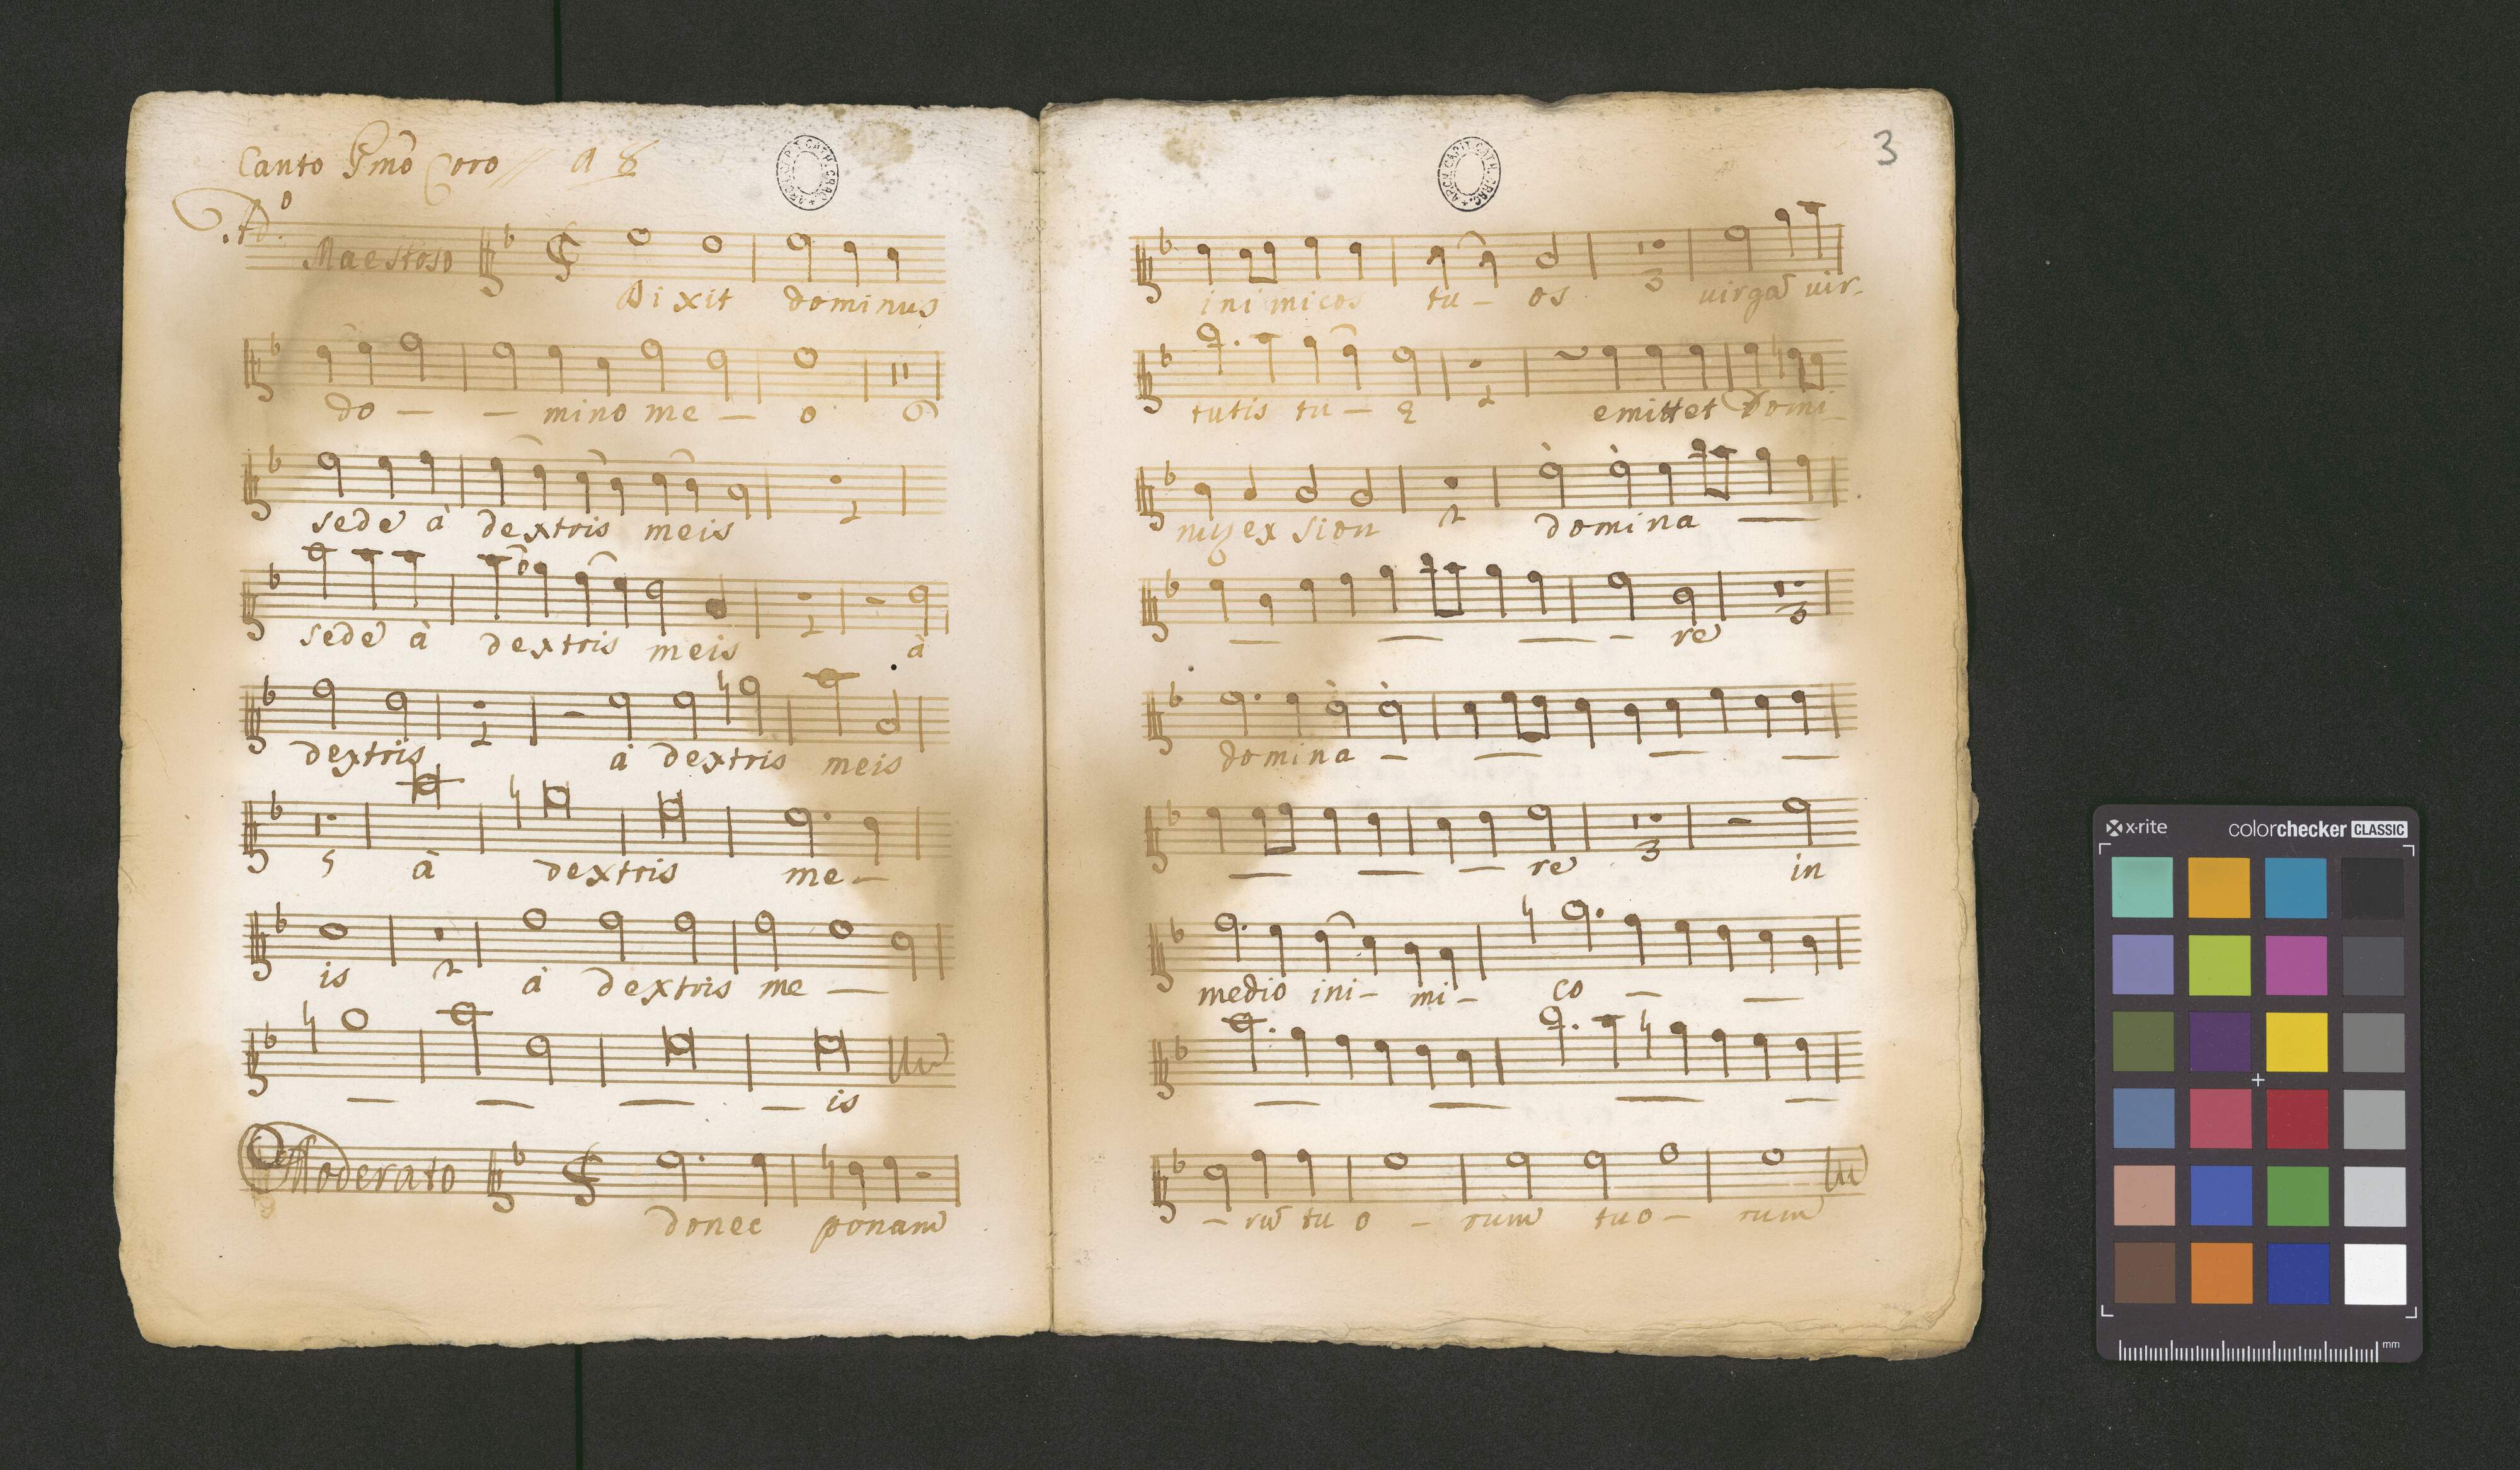 Canto Pmõ Coro // a 8
Maestoso
Dixit dominus
do — — mino me — o 6
sede à dextris meis 2
sede à dextris meis 2 à
dextris 2 à dextris meis
5 à dextris me —
is 2 à dextris me —
— — — — is
Moderato
donec ponam
3
ARCH. CAPIT. CATH. CRAC.
inimicos tu — os 3 virgã vir-
tutis tu — ę 2 emittet Domi-
nus ex Sion 2 domina —
— — — — re 3
domina — — — —
— — — re 3 in
medio ini- mi- co — —
— — — —
— rũ tu o — rum tuo — rum
x-rite colorchecker CLASSIC
mm